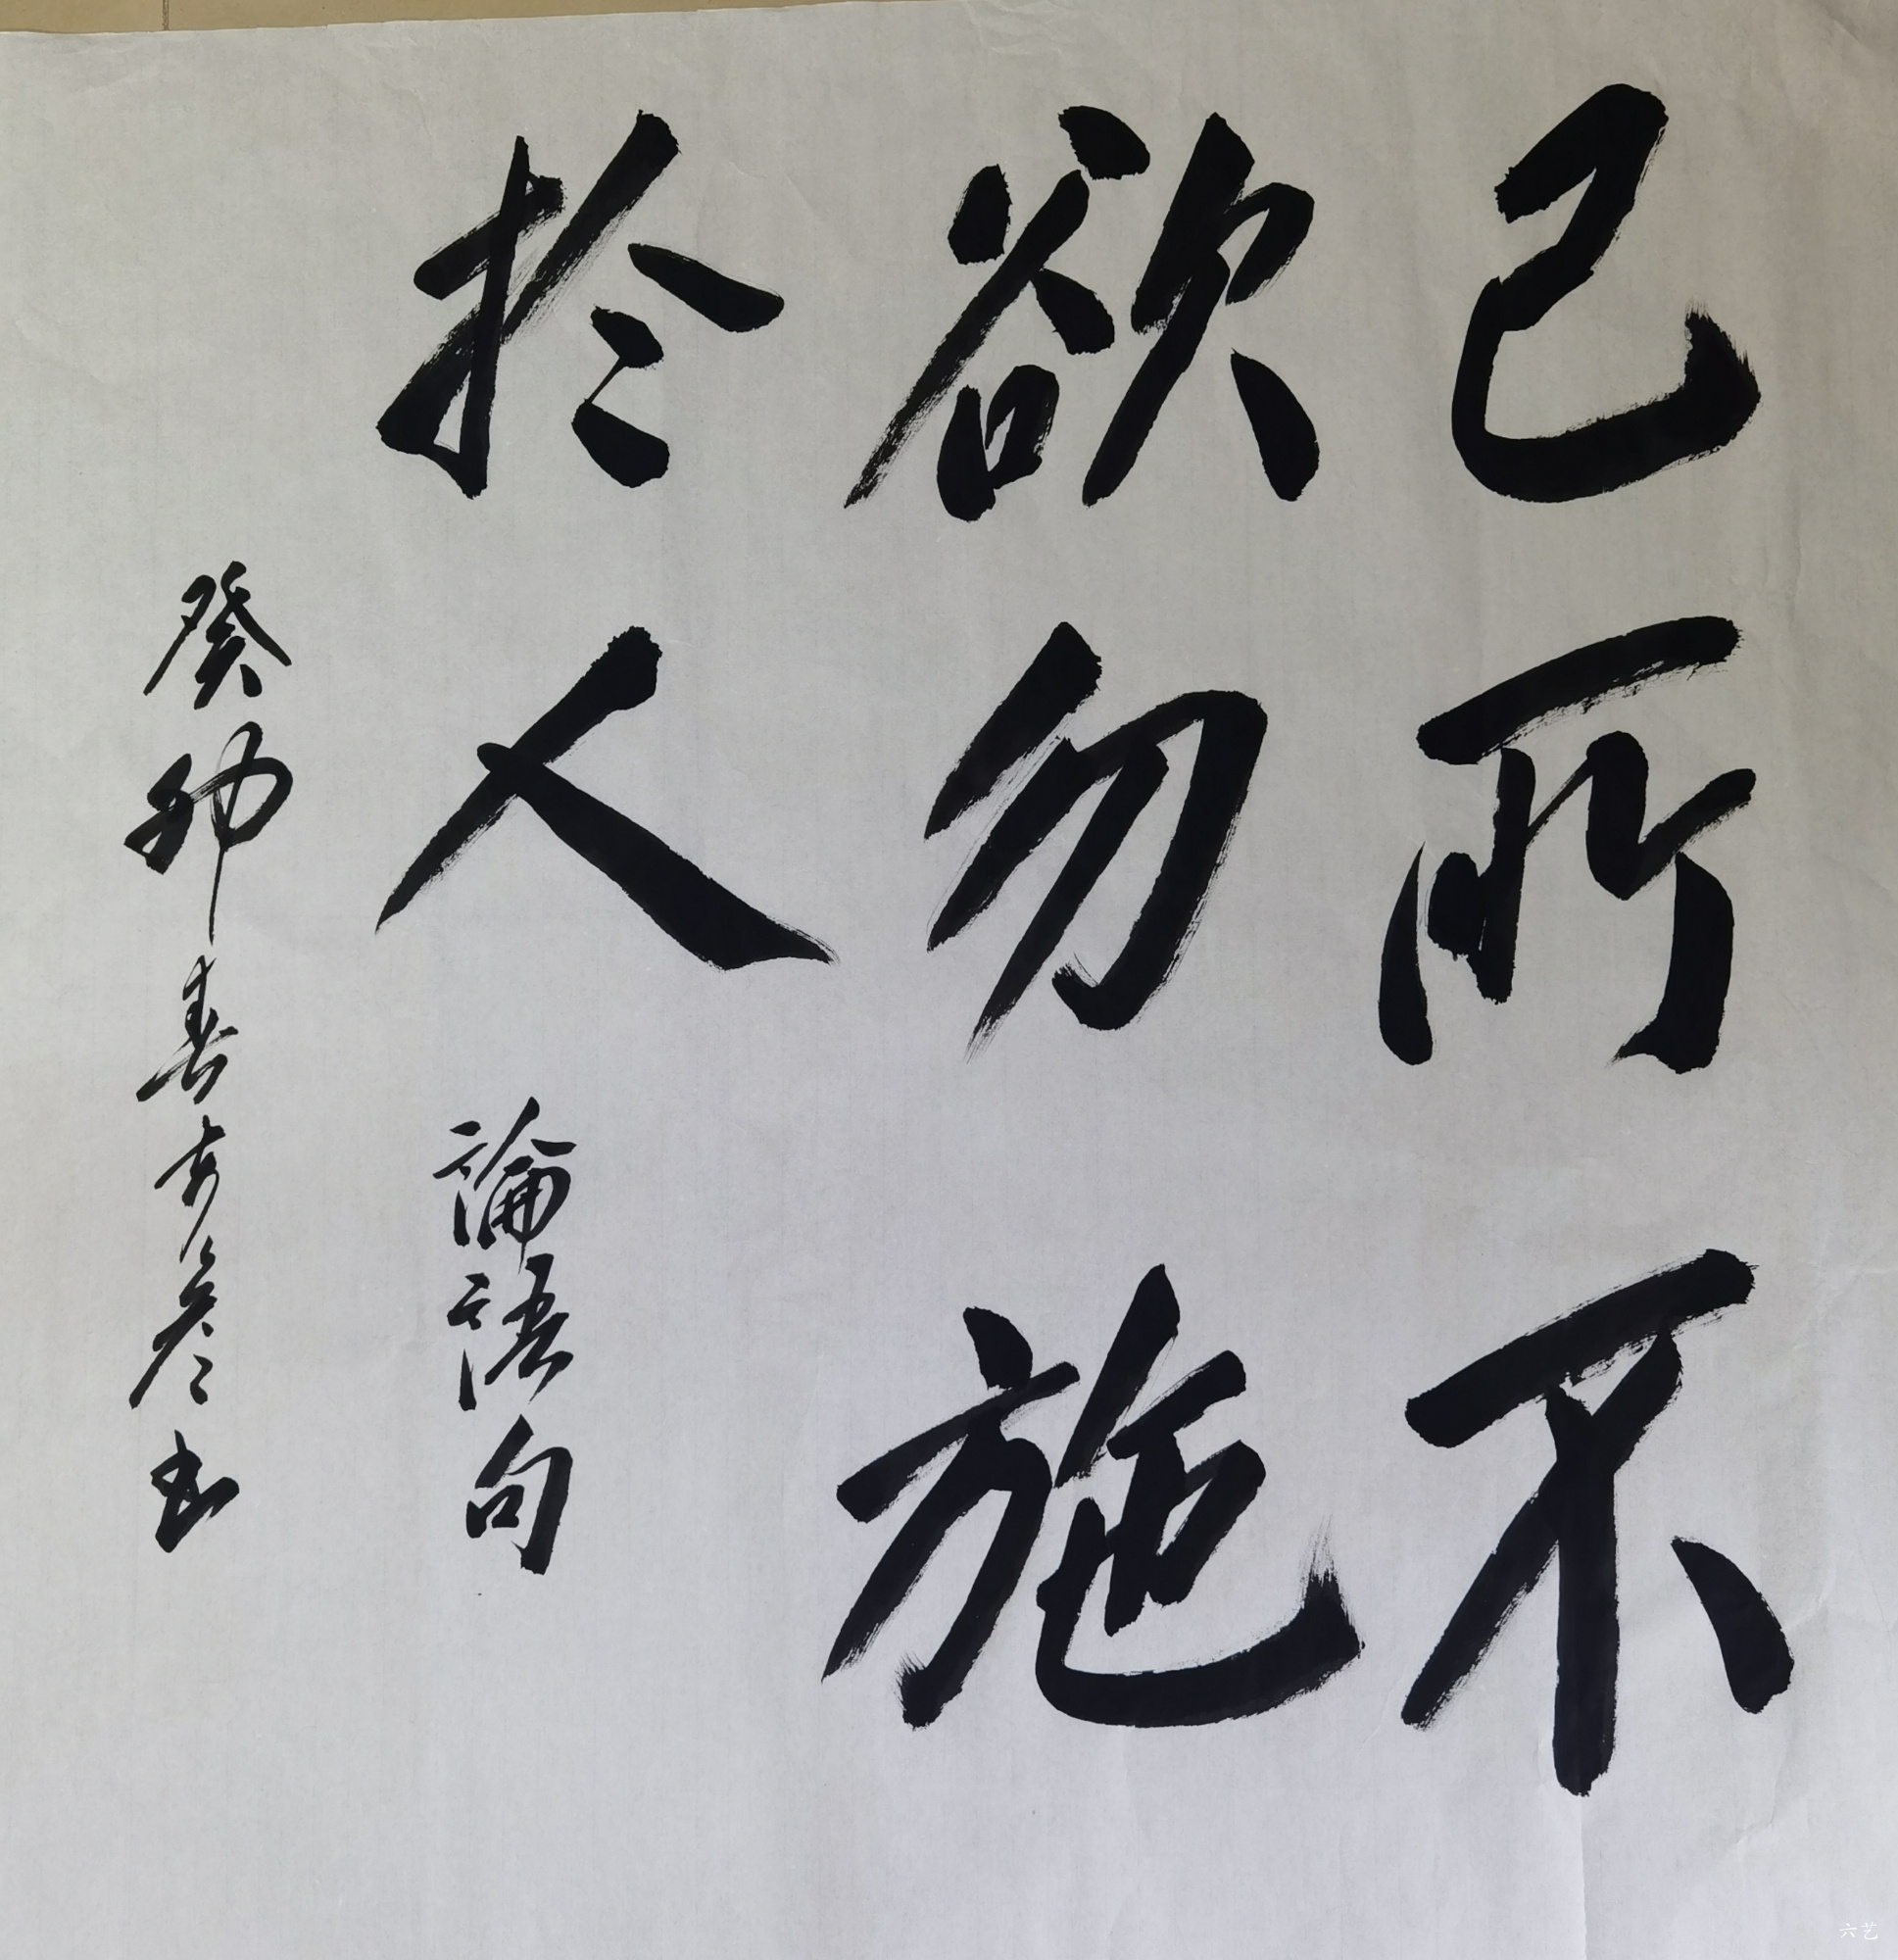 己所不
欲勿施
於人 論語句
癸卯春
書
六艺